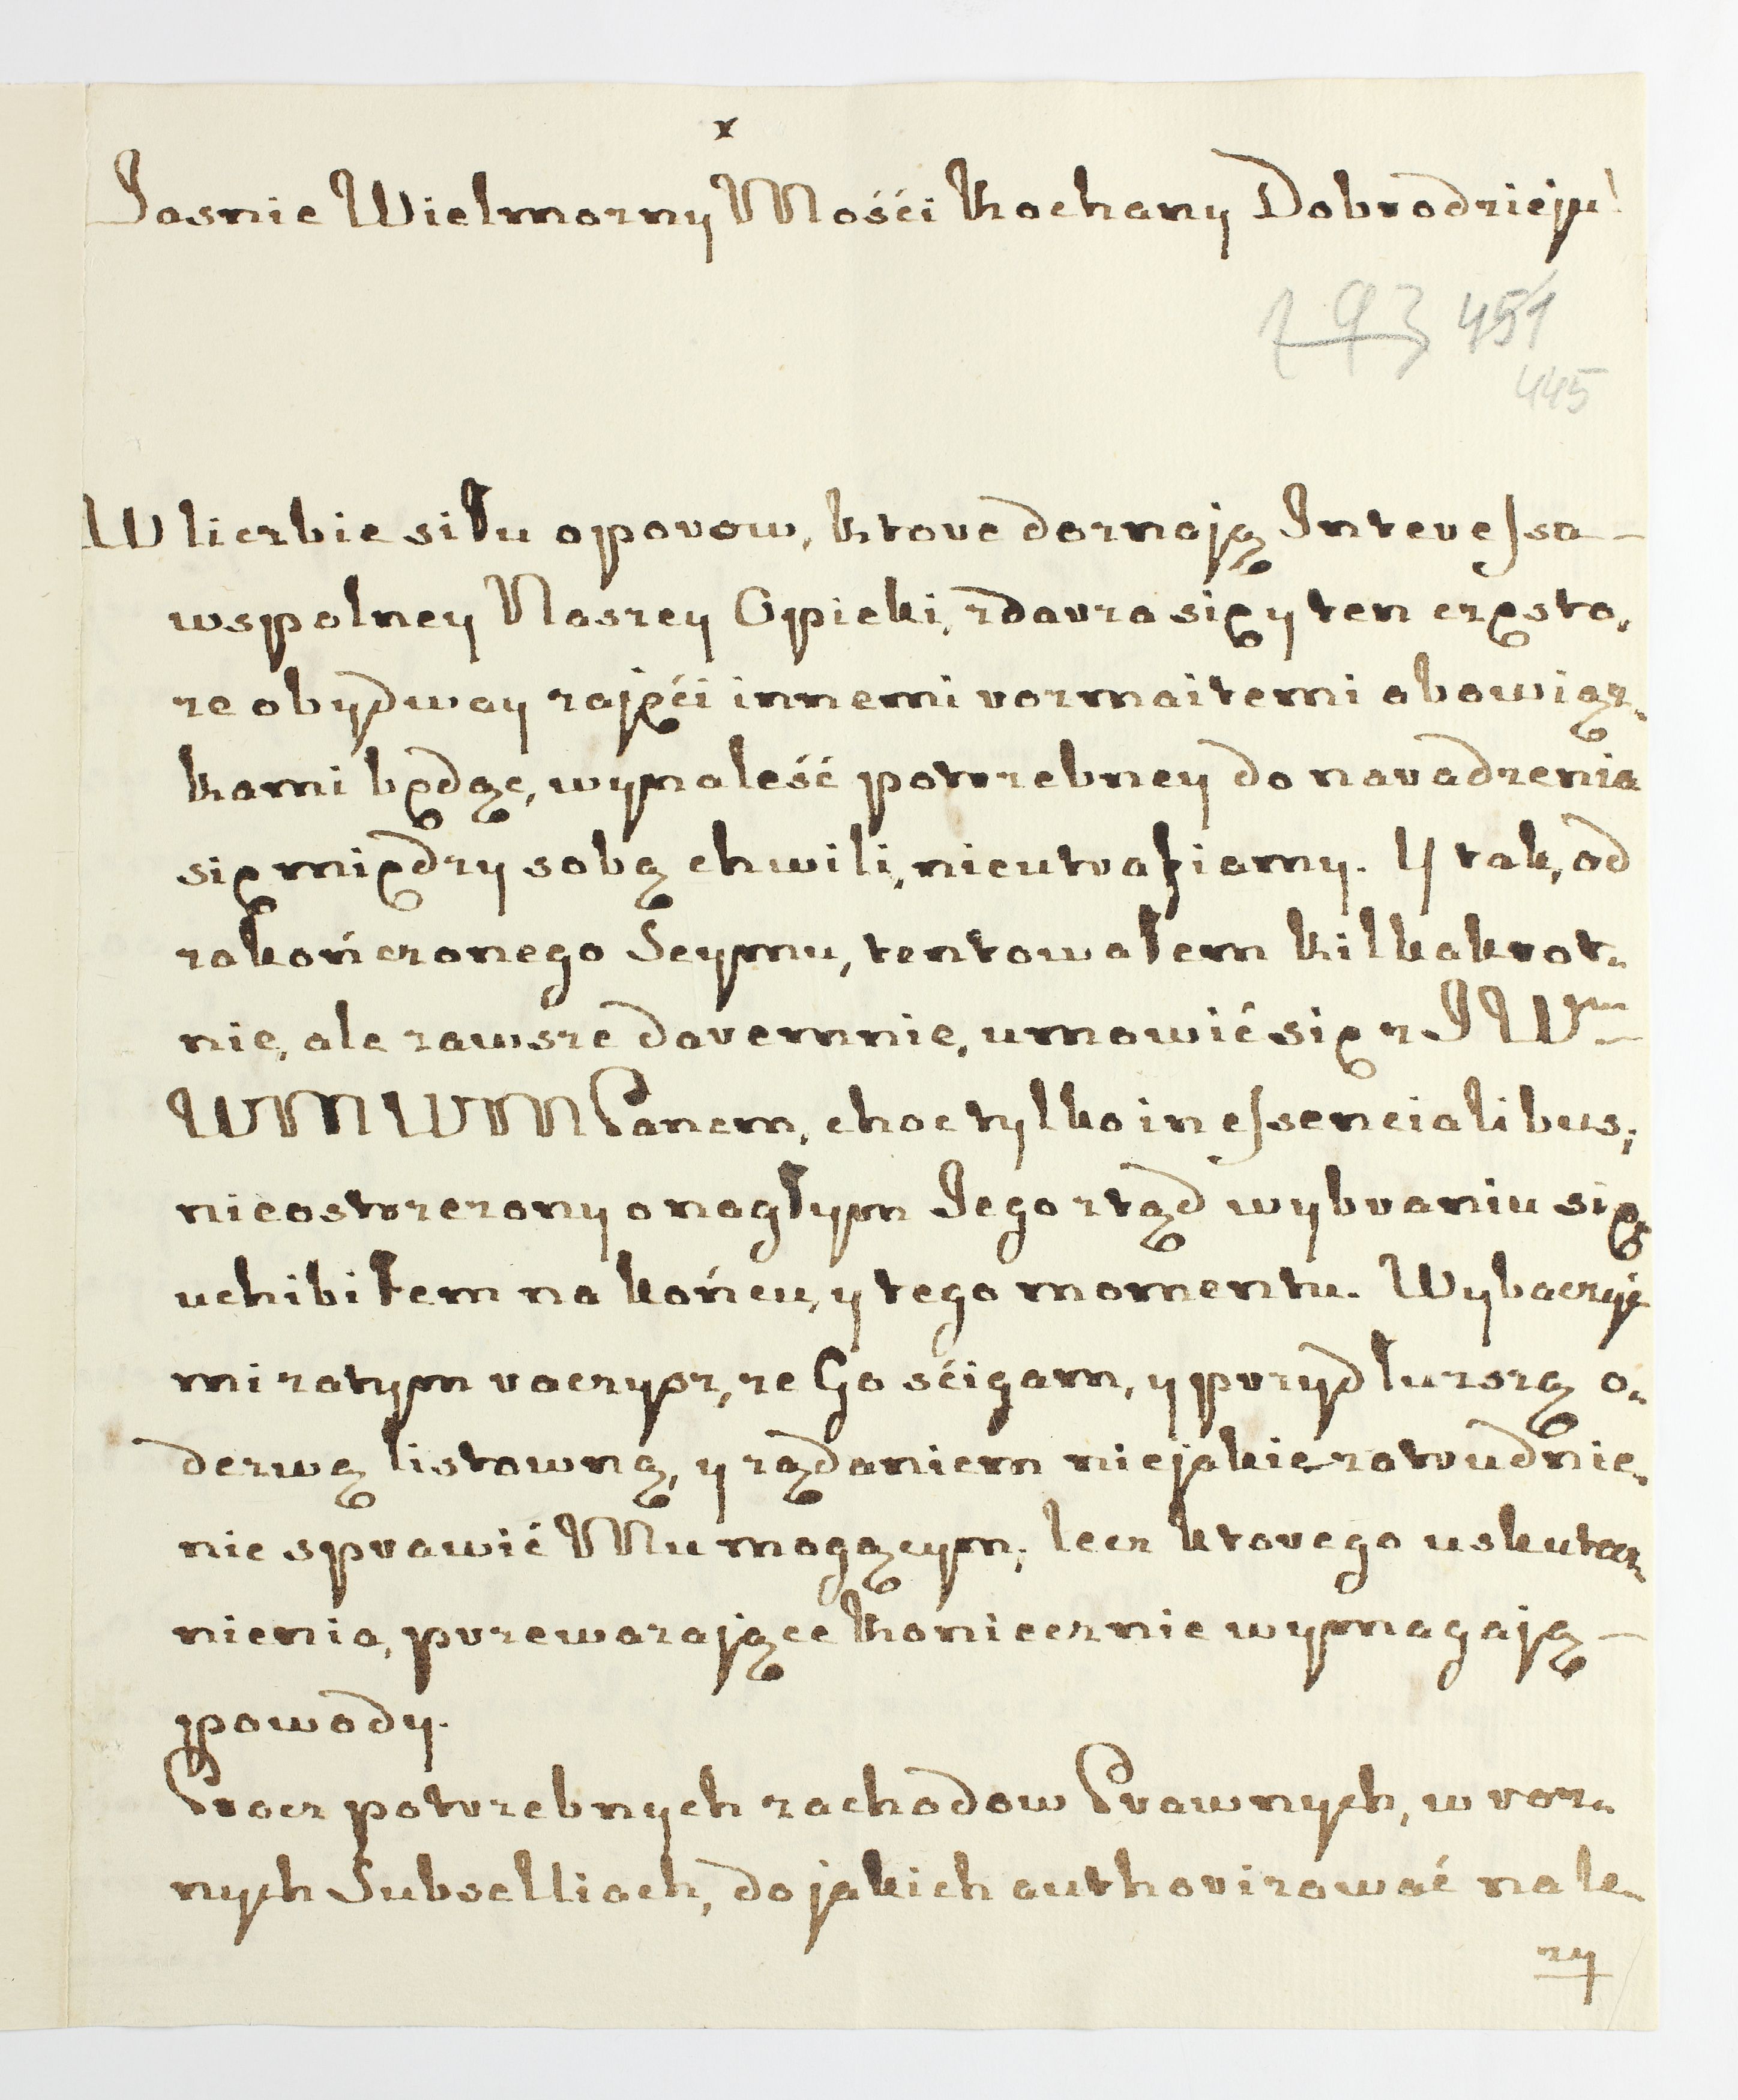 x
Jasnie Wielmozny Mośći Kochany Dobrodzieju!
193 451
445
W liczbie siłu oporow, ktore doznają Interessa –
wspolney Naszey Opieki, zdarza się y ten często,
ze obydway zajęći innemi rozmaitemi obowiąz-
kami będąc, wynaleść potrzebney do naradzenia
się między sobą chwili, nieutrafiamy. Y tak, od
zakończonego Seymu, tentowałem kilkakrot-
nie, ale zawsze daremnie, umowić się z JWm
WM WM Panem, choc tylko in essencialibus;
nieostrzezony o nagłym Jego ztąd wybraniu się,
uchibiłem na końcu, y tego momentu. Wybaczyć
mi zatym raczysz, ze Go sćigam, y przydłuzszą o-
dezwą listowną, y ządaniem niejakie zatrudnie-
nie sprawić Mu mogącym; lecz ktorego uskutecz-
nienia, przewazające koniecznie wymagają –
powody.
Procz potrzebnych zachodow Prawnych, w roz-
nych Subselliach, do jakich authorizować nale-
zy